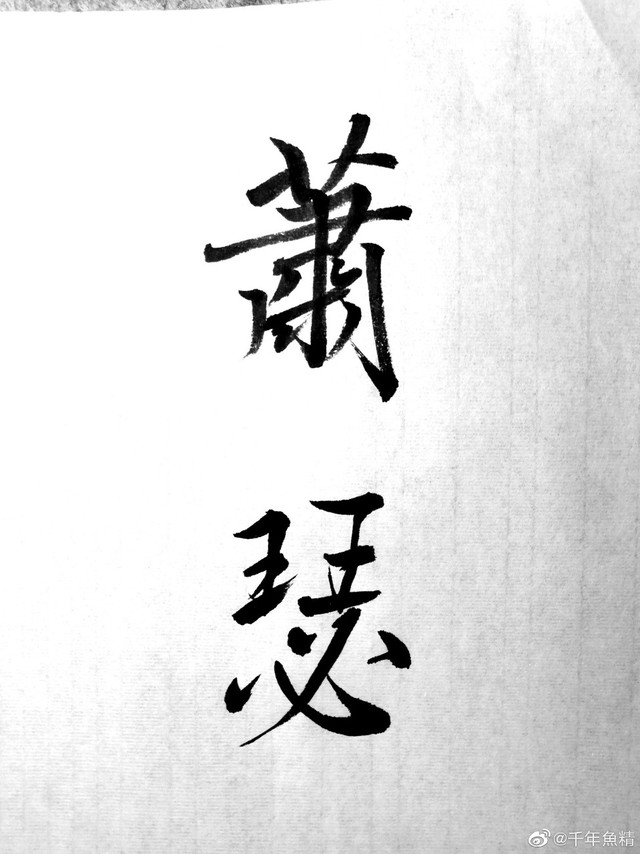 蕭
瑟
@千年魚精